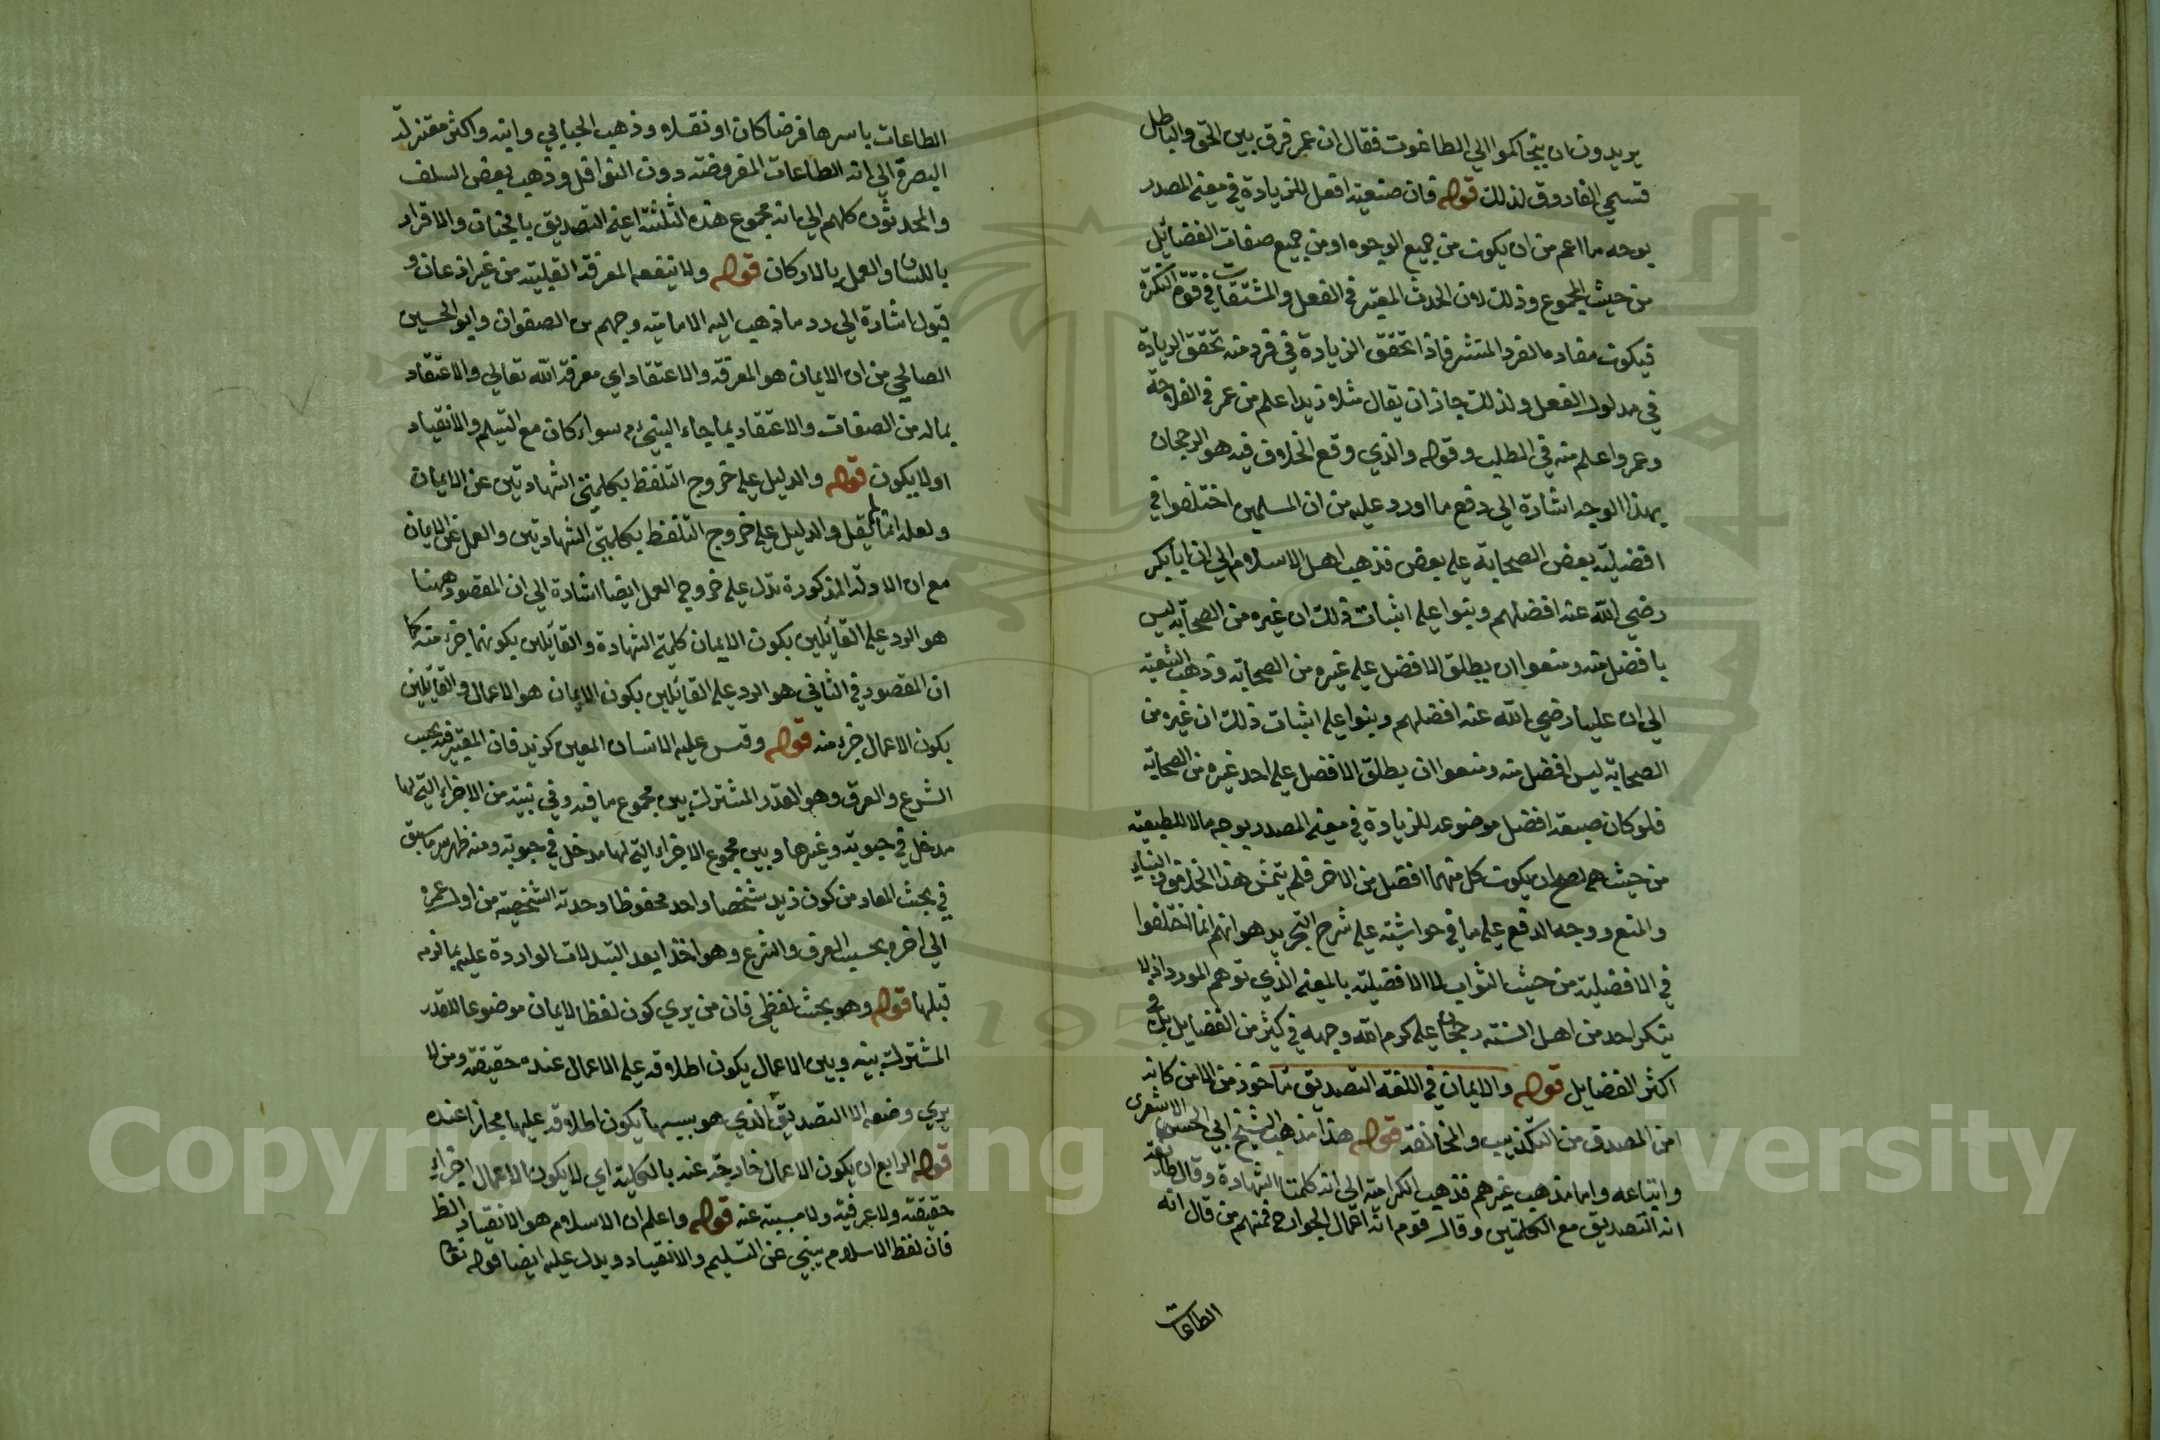 يريدون ان يتحاكموا الي الطاغوت فقال ان عمر فرق بين الحق والباطل
فسمي الفاروق لذلك قوله فان صيغة افعل للزيادة في معني المصدر
بوجه ما اعم من ان يكون من جميع الوجوه او من جميع صفات الفضايل
من حيث المجموع وذلك لان الحدث المعتبر في الفعل والمشتقات في قوة النكرة
فيكون مفاده الفرد المنتشر فاذا تحقق الزيادة في فرد منه تحقق الزيادة
في مدلول الفعل ولذلك جاز ان يقال مثلا زيد اعلم من عمر في الفلاحة
وعمرو اعلم منه في الطب وقوله والذي وقع الخلاف فيه هو الرجحان
بهذا الوجه اشارة الي دفع ما اورد عليه من ان المسلمين اختلفوا في
افضلية بعض الصحابة علي بعض فذهب اهل الاسلام الي ان ابا بكر
رضي الله عنه افضلهم وبنوا علي اثبات ذلك ان غيره من الصحابة ليس
بافضل منه ومنعوا ان يطلق الافضل علي غيره من الصحابة وذهب الشيعة
الي ان عليا رضي الله عنه افضلهم وبنوا علي اثبات ذلك ان غيره من
الصحابة ليس افضل منه ومنعوا ان يطلق الافضل علي احد غيره من الصحابة
فلو كان صيغة افضل موضوعه للزيادة في معني المصدر بوجه ما لا للطبيعة
من حيث هي لصح ان يكون كل منهما افضل من الاخر فلم يتمش هذا الخلاف والبناء
والمنع ووجه الدفع علي ما في حواشيه علي شرح التجريد هو انهم انما اختلفوا
في الافضلية من حيث الثواب لا الافضلية بالمعني الذي توهم المورد اذ لا
ينكر احد من اهل السنه رجحان علي كرم الله وجهه في كثير من الفضايل بل في
اكثر الفضايل قوله والايمان في اللغة التصديق ماخوذ من الامن كانه
امن المصدق من التكذيب والمخالفة قوله هذا مذهب الشيخ ابي الحسن الاشعري
واتباعه واما مذهب غيرهم فذهب الكرامية الي انه كلمتا الشهادة وقال طائفة
انه التصديق مع الكلمتين وقال قوم انه اعمال الجوارح فمنهم من قال انه
الطاعات
الطاعات باسرها فرضا كان او نفلا وذهب الجبايي وابنه واكثر معتزلة
البصرة الي انه الطاعات المفروضة دون النوافل وذهب بعض السلف
والمحدثون كلهم الي انه مجموع هذه الثلثة اعني التصديق بالجنان والاقرار
باللسان والعمل بالاركان قوله ولا ينفعه المعرفة القلبية من غير اذعان و
قبول اشارة الي رد ما ذهب اليه الامامية وجهم بن الصفوان وابو الحسين
الصالحي من ان الايمان هو المعرفة والاعتقاد اي معرفة الله تعالي والاعتقاد
بماله من الصفات والاعتقاد بما جاء النبيء م سواء كان مع التسلم والانقياد
او لا يكون قوله والدليل علي خروج التلفظ بكلمتي الشهادتين عن الايمان
ولعله انما لم يقل والدليل علي خروج التلفظ بكلمتي الشهادتين والعمل عن الايمان
مع ان الادلة المذكورة تدل علي خروج العمل ايضا اشارة الي ان المقصود ههنا
هو الرد علي القائلين بكون الايمان كلمتي الشهادة والقائلين بكونهما جزء منه كما
ان المقصود في الثاني هو الرد علي القائلين بكون الايمان هو الاعمال والقائلين
بكون الاعمال جزء منه قوله وقس عليه الانسان المعين كزيد فان المعتبر فيه بحسب
الشرع والعرف وهو القدر المشترك بين مجموع ما فيه وفي بنيته من الاجزاء التي لها
مدخل في حيوته وغيرها وبين مجموع الاجزاء التي لها مدخل في حيوته ومنه ظهر سر ما سبق
في بحث المعاد من كون زيد شخصا واحد محفوظا وحدته الشخصية من اول عمره
الي اخره بحسب العرف والشرع وهو اخذا بعد التبدلات الواردة عليه بما لزمه
قبلها قوله وهو بحث لفظي فان من يري كون لفظ الايمان موضوعا للقدر
المشترك بينه وبين الاعمال يكون اطلاقه علي الاعمال عنده حقيقة ومن لا
يري وضعه الا التصديق الذي هو سببها يكون اطلاقه عليها مجازا عنده
قوله الرابع ان يكون الاعمال خارجة عنه بالكلية اي لا يكون الاعمال اجزاء
حقيقة ولا عرفية ولا مسببة عنه قوله واعلم ان الاسلام هو الانقياد الظ
فان لفظ الاسلام ينبي عن التسليم والانقياد ويدل عليه ايضا قوله تعا
Copyright © King Saud University